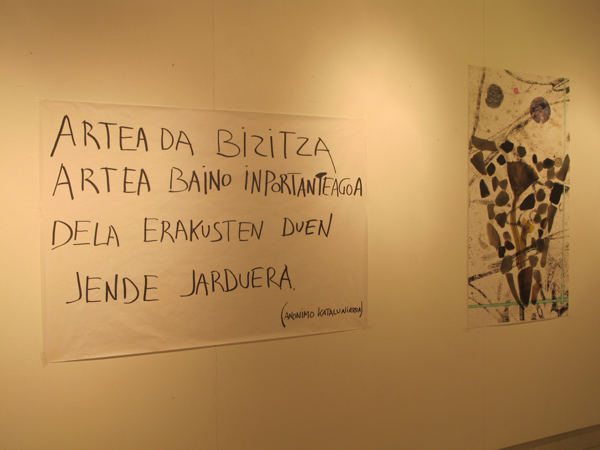 ARTEA DA BIZITZA
ARTEA BAINO INPORTANTEAGOA
DELA ERAKUSTEN DUEN
JENDE JARDUERA.
(ANONIMO KATALUNIARRA)